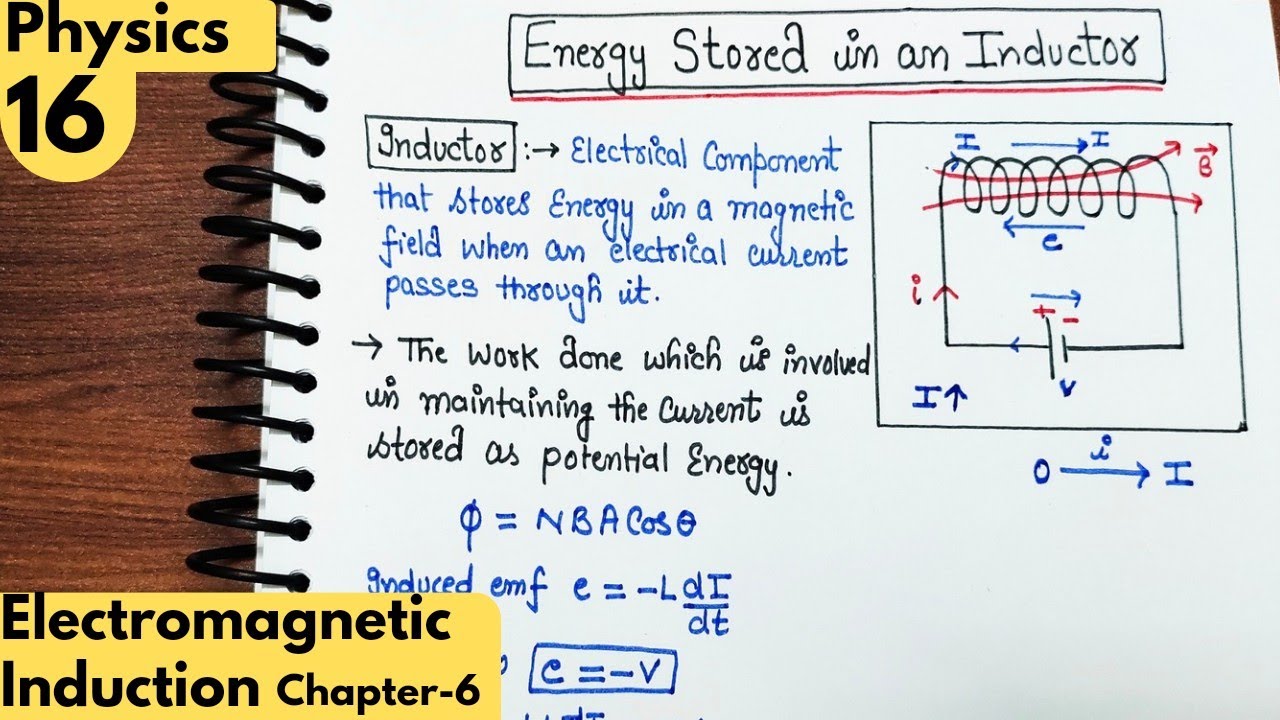 Physics
16
Energy Stored in an Inductor
Inductor :→ Electrical Component
that stores Energy in a magnetic
field when an electrical current
passes through it.
→ The work done which is involved
in maintaining the current is
stored as potential Energy.
ϕ = NBA Cosθ
Induced emf e = -L dI/dt
e = -V
I → I
B⃗
e
i
+ -
V
I↑
0 i→ I
Electromagnetic
Induction Chapter-6